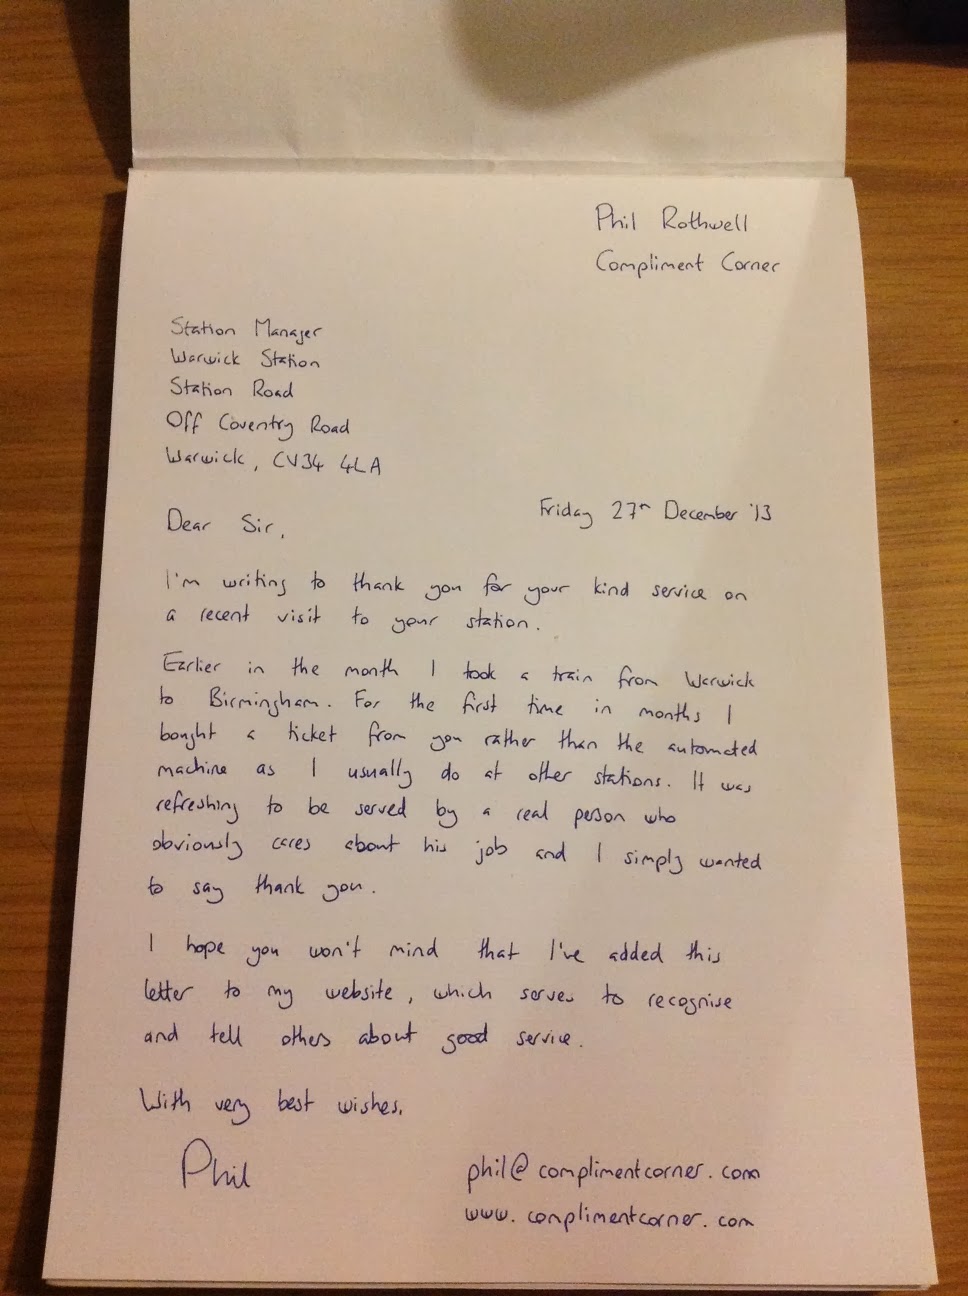 Phil Rothwell
Compliment Corner
Station Manager
Warwick Station
Station Road
Off Coventry Road
Warwick, CV34 4LA
Friday 27th December '13
Dear Sir,
I'm writing to thank you for your kind service on
a recent visit to your station.
Earlier in the month I took a train from Warwick
to Birmingham. For the first time in months I
bought a ticket from you rather than the automated
machine as I usually do at other stations. It was
refreshing to be served by a real person who
obviously cares about his job and I simply wanted
to say thank you.
I hope you won't mind that I've added this
letter to my website, which serves to recognise
and tell others about good service.
With very best wishes,
Phil
phil@complimentcorner.com
www.complimentcorner.com